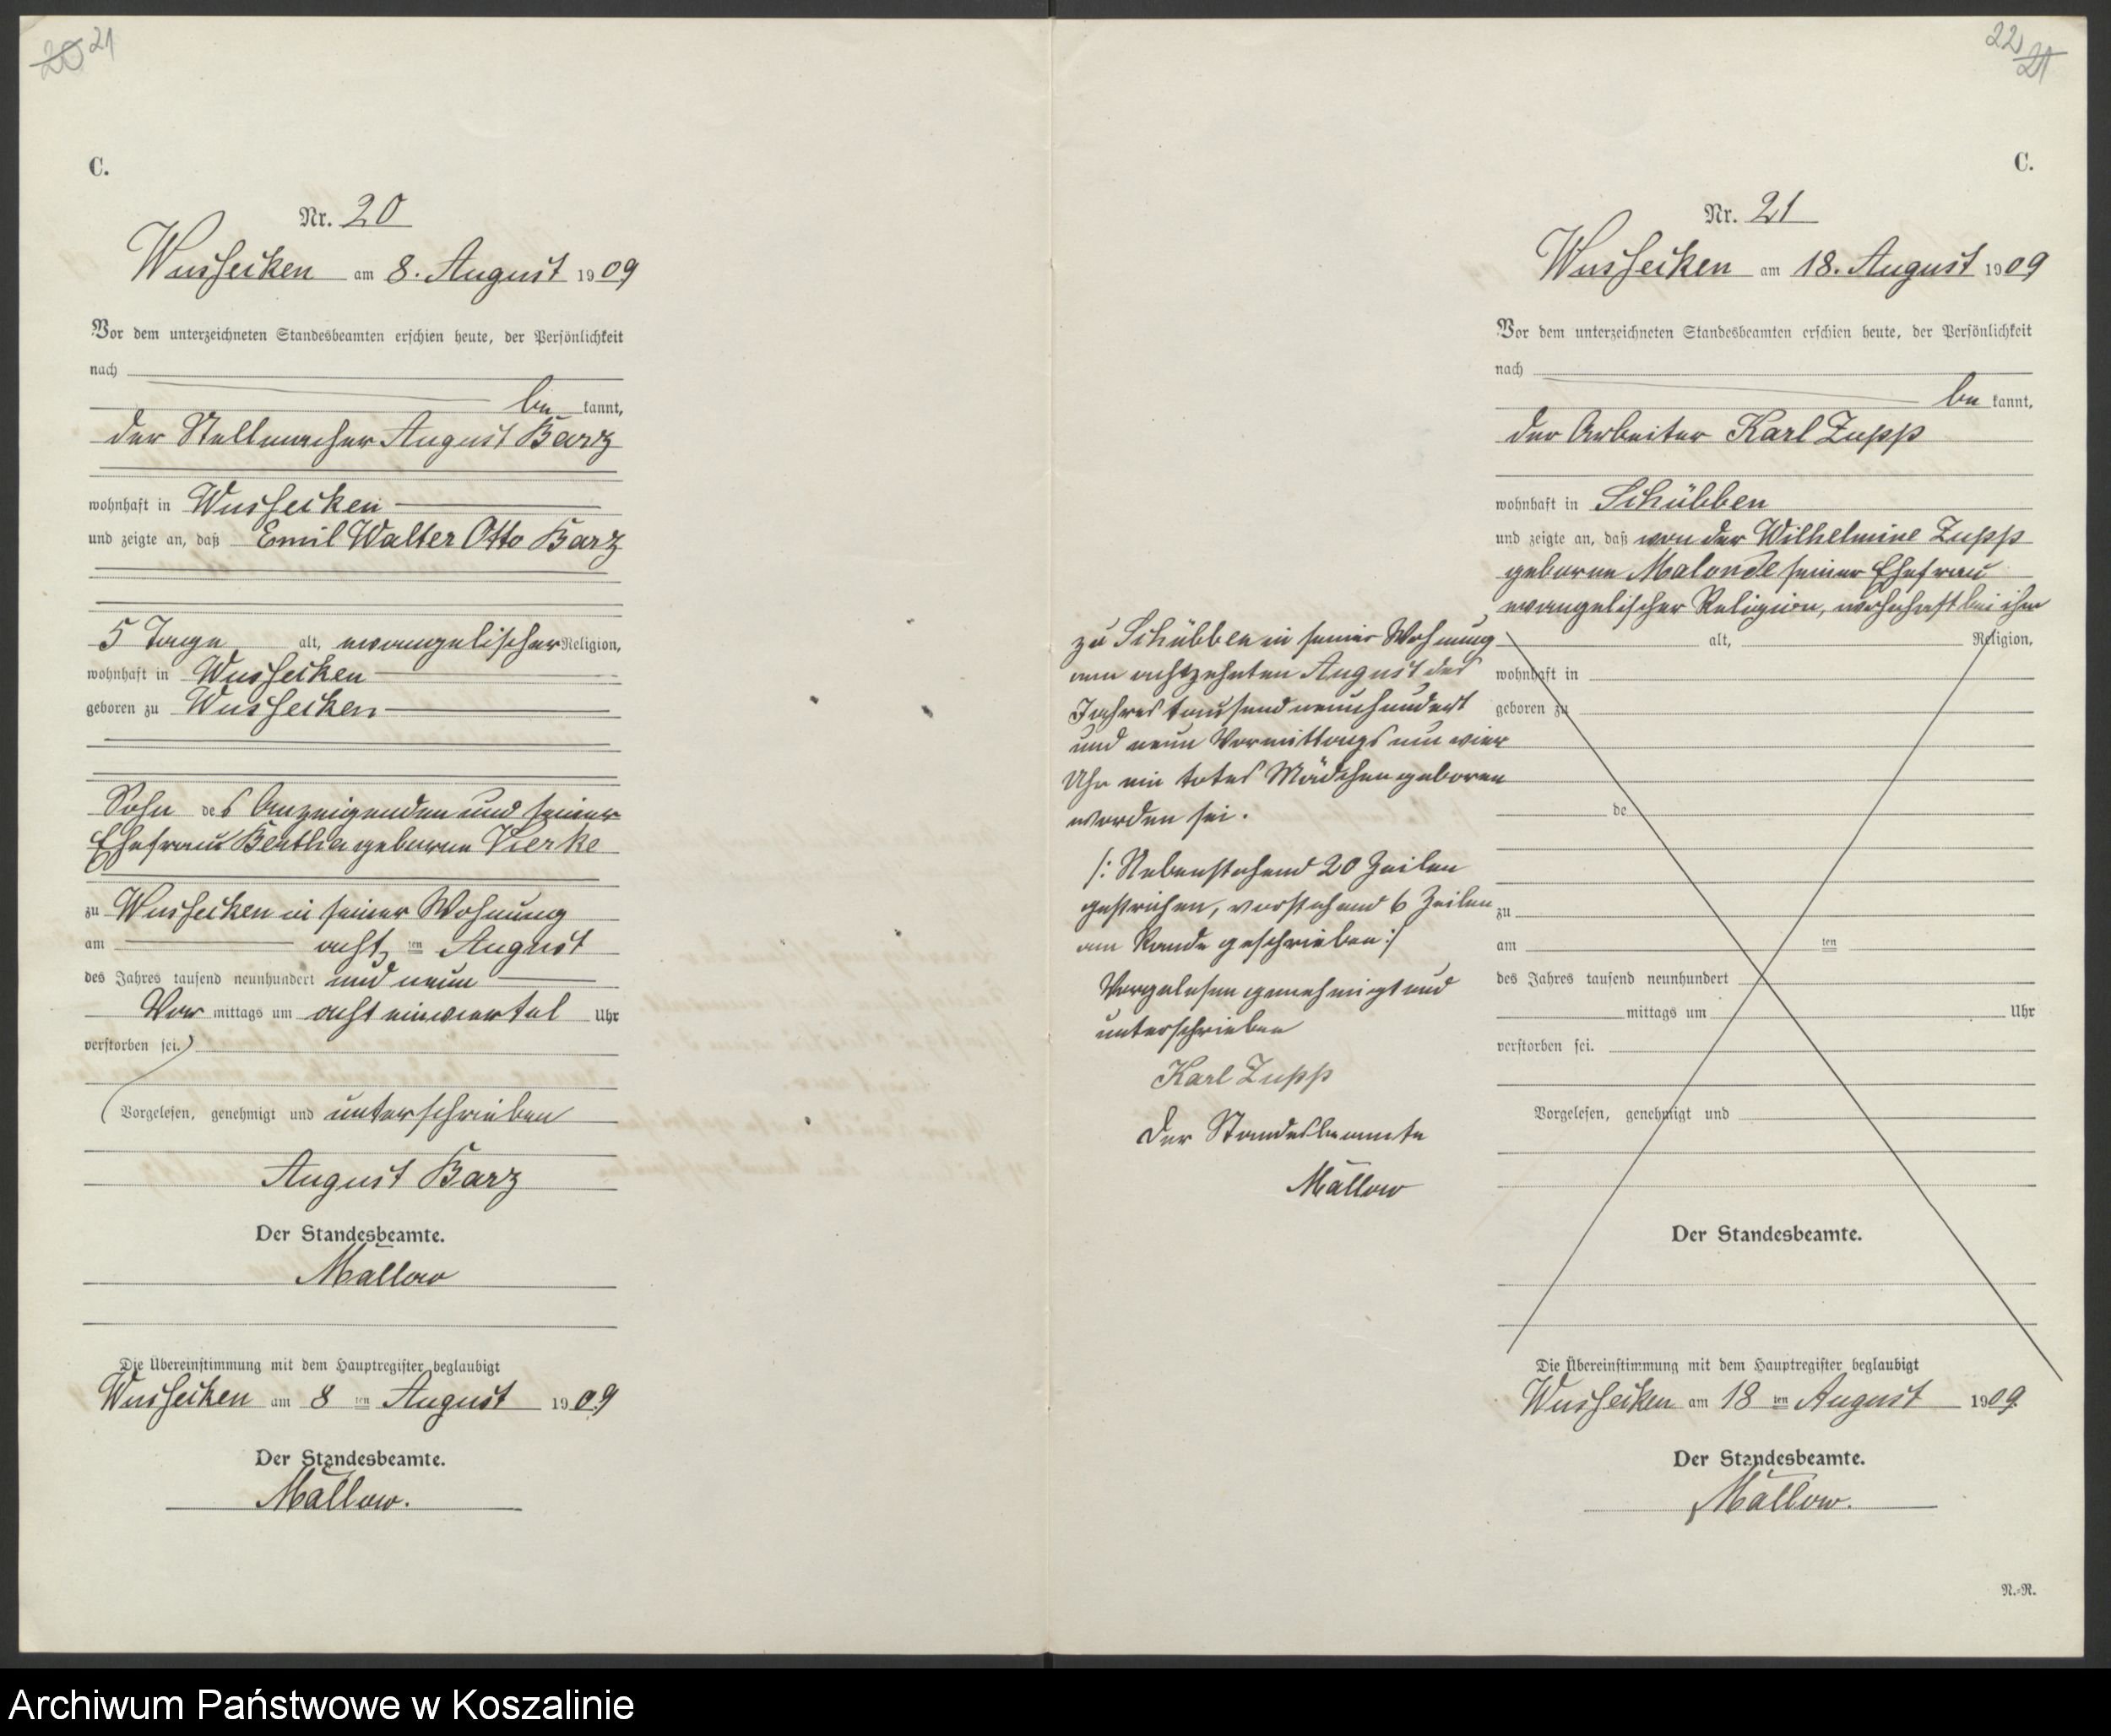 20 21
C.
Nr. 20
Wussecken am 8. August 1909
Vor dem unterzeichneten Standesbeamten erschien heute, der Persönlichkeit
nach
be kannt,
der Stellmacher August Barz
wohnhaft in Wussecken
und zeigte an, daß Emil Walter Otto Barz
5 Tage alt, evangelischer Religion,
wohnhaft in Wussecken
geboren zu Wussecken
Sohn des Anzeigenden und seiner
Ehefrau Bertha geborene Vierke
zu Wussecken in seiner Wohnung
am acht ten August
des Jahres tausend neunhundert und neun
Vor mittags um acht einviertel Uhr
verstorben sei.
Vorgelesen, genehmigt und unterschrieben
August Barz
Der Standesbeamte.
Mallow
Die Übereinstimmung mit dem Hauptregister beglaubigt
Wussecken am 8 ten August 1909
Der Standesbeamte.
Mallow.
22 21
C.
Nr. 21
Wussecken am 18. August 1909
Vor dem unterzeichneten Standesbeamten erschien heute, der Persönlichkeit
nach
be kannt,
der Arbeiter Karl Zupp
wohnhaft in Schübben
und zeigte an, daß von der Wilhelmine Zupp
geborene Malonde seiner Ehefrau
evangelischer Religion, wohnhaft bei ihm
zu Schübben in seiner Wohnung
am achtzehnten August des
Jahres tausend neunhundert
und neun Vormittags um vier
Uhr ein totes Mädchen geboren
worden sei.
/: Nebenstehend 20 Zeilen
gestrichen, vorstehend 6 Zeilen
am Rande geschrieben :/
Vorgelesen genehmigt und
unterschrieben
Karl Zupp
Der Standesbeamte
Mallow
alt, Religion,
wohnhaft in
geboren zu
de
zu
am ten
des Jahres tausend neunhundert
mittags um Uhr
verstorben sei.
Vorgelesen, genehmigt und
Der Standesbeamte.
Die Übereinstimmung mit dem Hauptregister beglaubigt
Wussecken am 18 ten August 1909.
Der Standesbeamte.
Mallow.
N.-R.
Archiwum Państwowe w Koszalinie